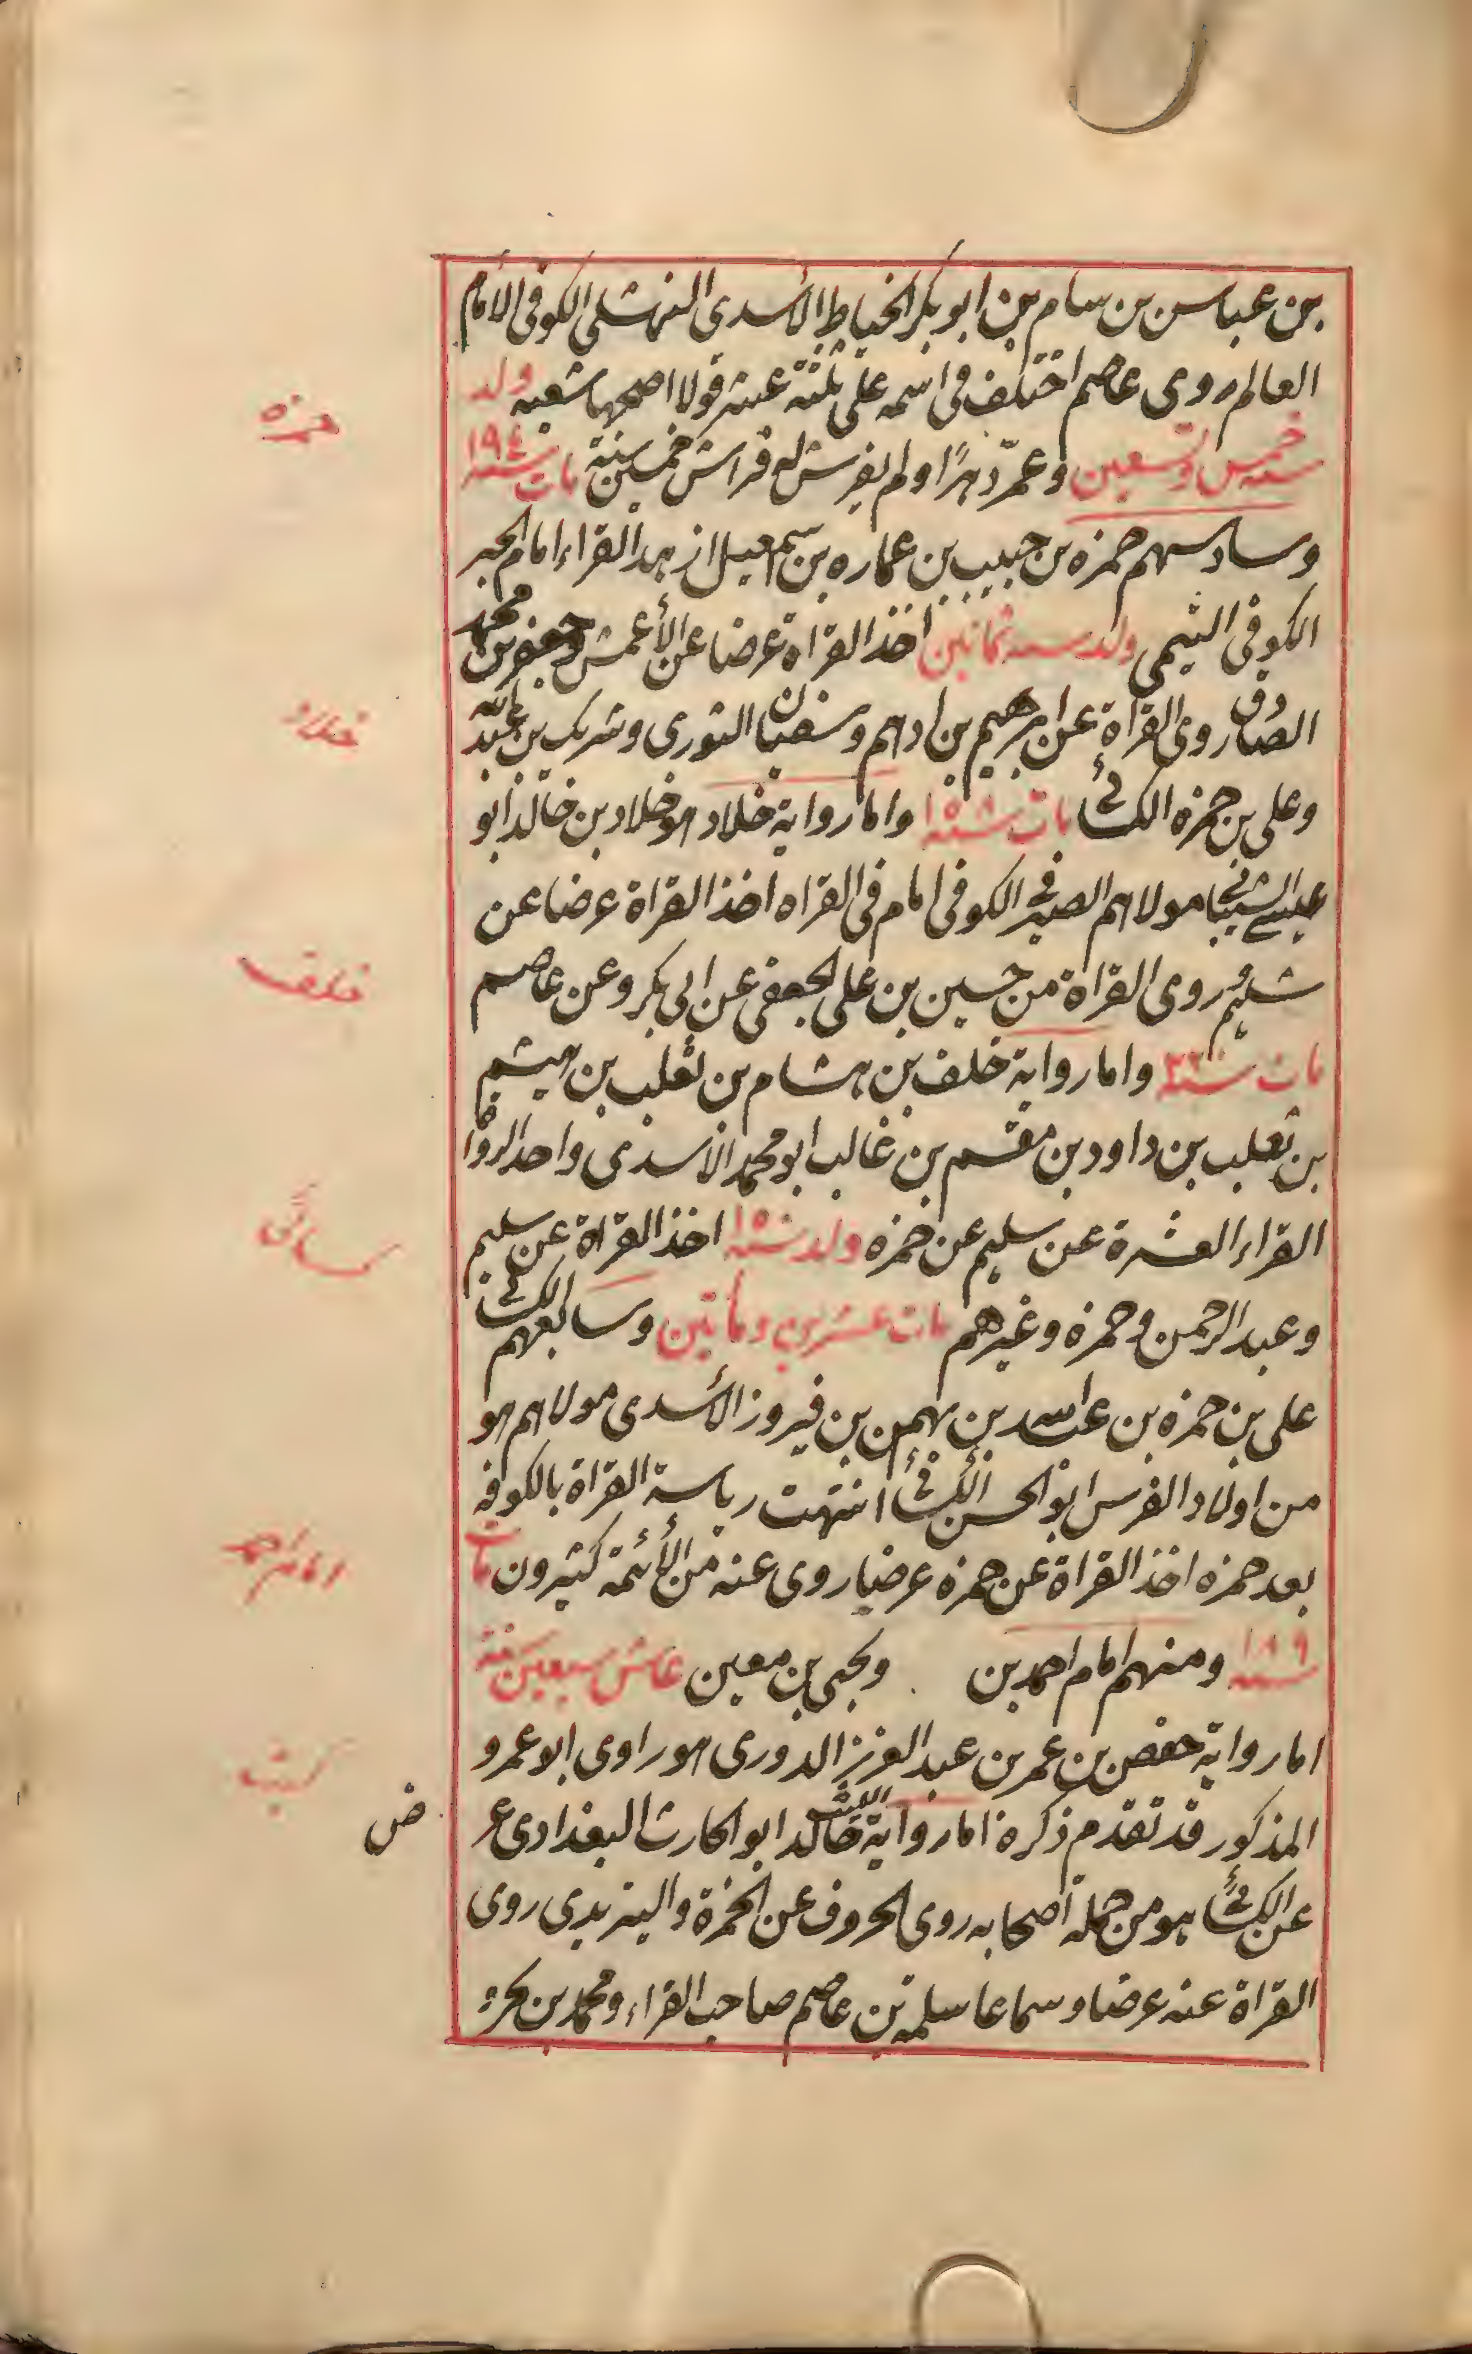 بن عباس بن سام بن ابو بكر الخياط الأسدى النهشلى الكوفى الامام
العالم روى عاصم اختلف فى اسمه على ثلثة عشر قولا اصحها شعبه ولد
سنه خمس وتسعين وعمّر دهرًا ولم يفرش له فراش خمسين سنة مات سنه ١٩٤
وسادسهم حمزه بن حبيب بن عماره بن اسمعيل ازهد القراء امام الحبر
الكوفى التيمى ولد سنه ثمانين اخذ القراة عرضا عن الأعمش وجعفر بن محمد
الصادق روى القراة عن ابرهيم بن ادهم وسفيان الثورى وشريك بن عبد الله
وعلى بن حمزه الكسائى مات سنه واما رواية خلاد هو خلاد بن خالد ابو
عيسى الشيبانى مولاهم الصيرفى الكوفى امام فى القراه اخذ القراة عرضا عن
سليم روى القراة من حسين بن على الجعفى عن ابى بكر وعن عاصم
مات سنه ٢٢٠ واما رواية خلف بن هشام بن ثعلب بن هيثم
بن ثعلب بن داود بن مقسم بن غالب ابو محمد الاسدى واحد الرواة
القراء العشرة عن سليم عن حمزه ولد سنه ١٥٠ اخذ القراة عن سليم
وعبد الرحمن وحمزه وغيرهم مات عشرين ومأتين وسابعهم الكسائى
على بن حمزه بن عبد الله بن بهمن بن فيروز الأسدى مولاهم هو
من اولاد الفرس ابو الحسن الكسائى انتهت رياسة القراة بالكوفه
بعد حمزه اخذ القراة عن حمزه عرضا روى عنه من الأئمة كثيرون مات
سنه ١٨٩ ومنهم امام احمد بن ويحيى بن معين عاش سبعين سنة
اما رواية حفص بن عمر بن عبد العزيز الدورى هو راوى ابو عمرو
المذكور قد تقدم ذكره اما رواية الليث خالد ابو الحارث البغدادى عر
عن الكسائى هو من جمله اصحابه روى الحروف عن الحمزة واليزيدى روى
القراة عنه عرضا وسماعا سلمه بن عاصم صاحب القراء ومحمد بن
حمزه
خلاد
خلف
كسائى
امام احمد
ليث
ض